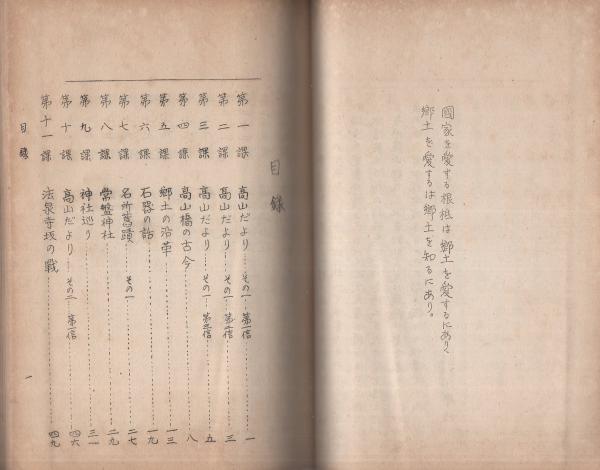 國家を愛する根柢は鄕土を愛するにあり
鄕土を愛するは鄕土を知るにあり。
目錄
第一課 高山だより……その一 第一信……一
第二課 高山だより……その一 第二信……三
第三課 高山だより……その一 第三信……五
第四課 高山橋の古今……八
第五課 鄕土の沿革……一三
第六課 石器の話……一九
第七課 名所舊蹟……その一……二七
第八課 常盤神社……二九
第九課 神社巡り……三一
第十課 高山だより……その二 第一信……四六
第十一課 法泉寺坂の戰……四九
目錄
一